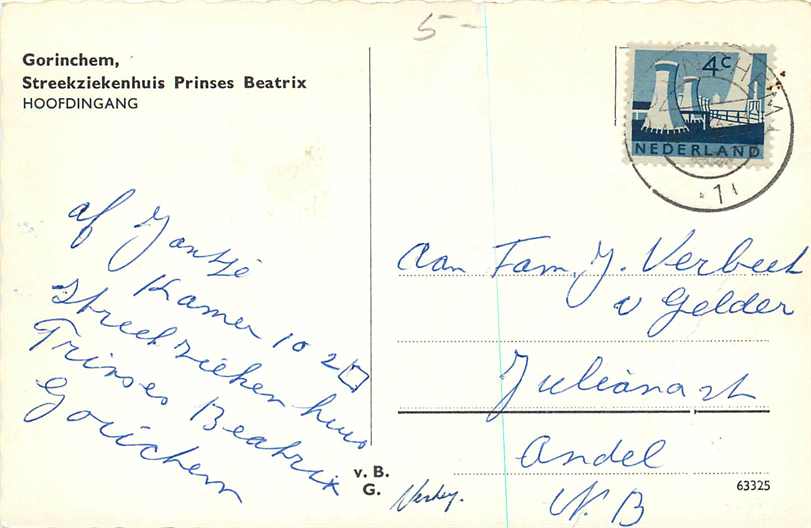 5-
Gorinchem,
Streekziekenhuis Prinses Beatrix
HOOFDINGANG
4c
NEDERLAND
11
af Jantje
Kamer 10 2
Streekziekenhuis
Prinses Beatrix
Gorichem
aan Fam. J. Verbeek
v Gelder
Julianast
Andel
N. B
v. B.
G.
63325